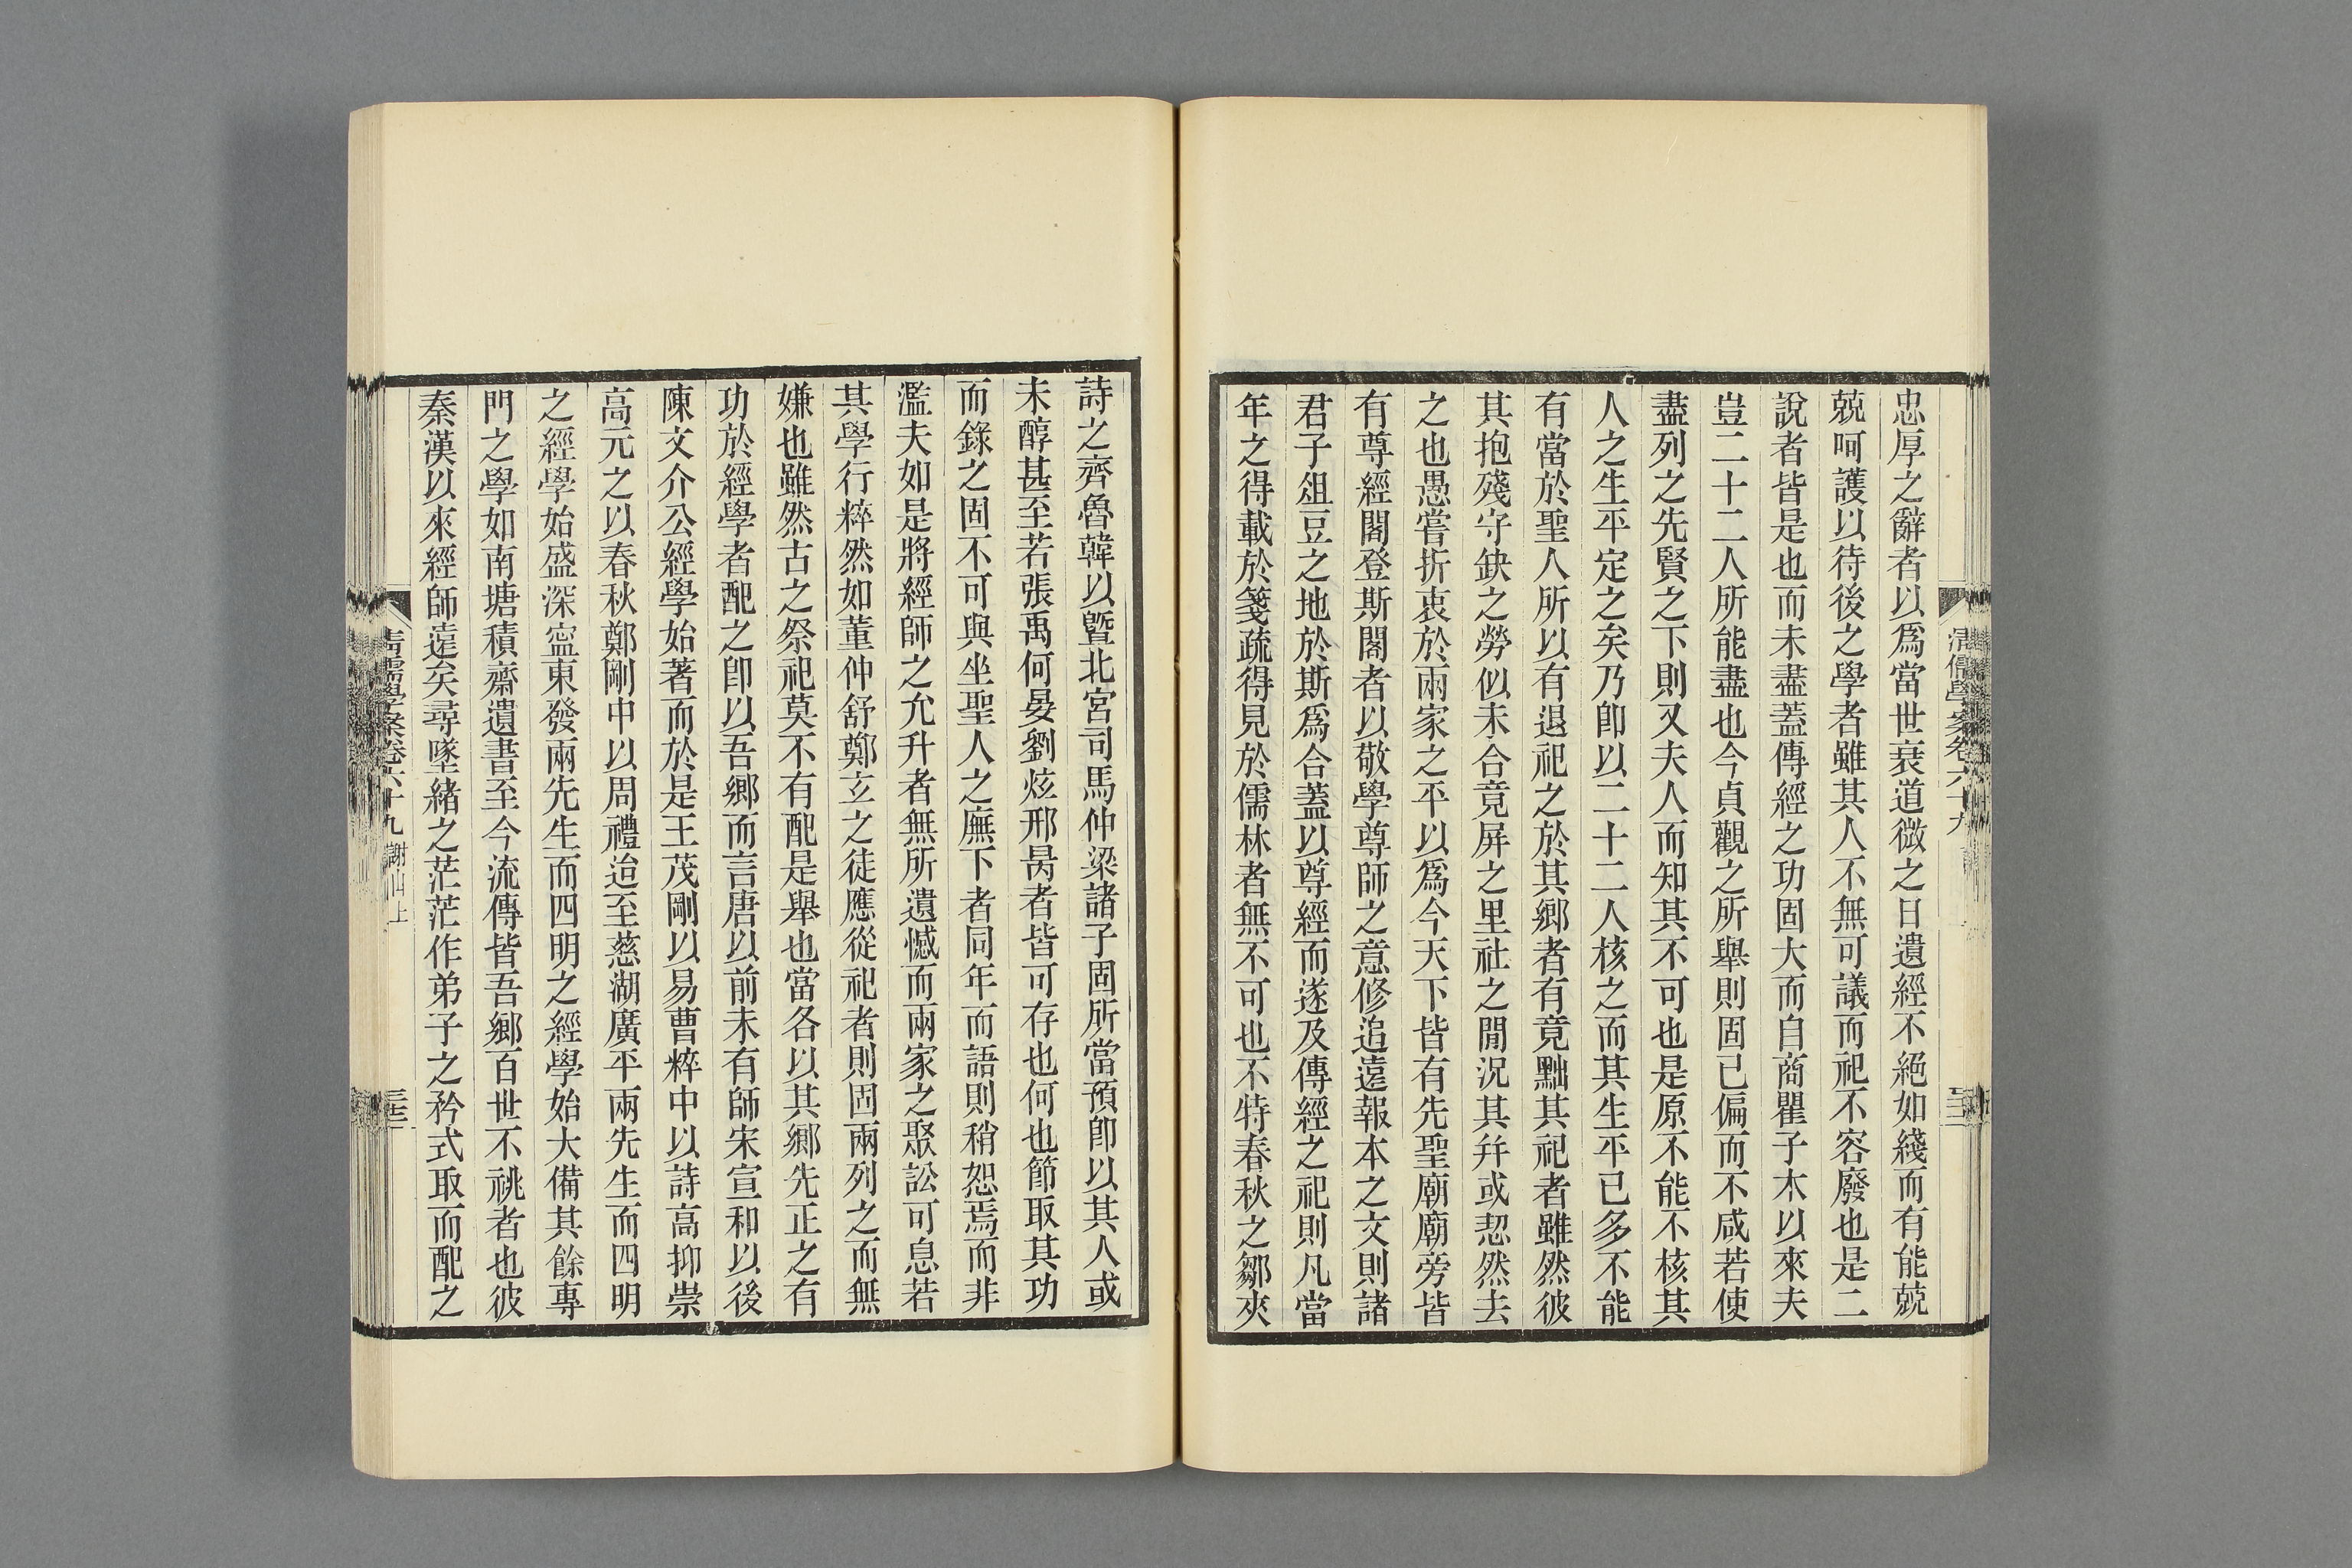 忠厚之辭者以爲當世衰道微之日遺經不絕如綫而有能兢
兢呵護以待後之學者雖其人不無可議而祀不容廢也是二
說者皆是也而未盡蓋傳經之功固大而自商瞿子木以來夫
豈二十二人所能盡也今貞觀之所舉則固已偏而不咸若使
盡列之先賢之下則又夫人而知其不可也是原不能不核其
人之生平定之矣乃卽以二十二人核之而其生平已多不能
有當於聖人所以有退祀之於其鄉者有竟黜其祀者雖然彼
其抱殘守缺之勞似未合竟屏之里社之閒況其幷或恝然去
之也愚嘗折衷於兩家之平以爲今天下皆有先聖廟廟旁皆
有尊經閣登斯閣者以敬學尊師之意修追遠報本之文則諸
君子俎豆之地於斯爲合蓋以尊經而遂及傳經之祀則凡當
年之得載於箋疏得見於儒林者無不可也不特春秋之鄒夾
詩之齊魯韓以曁北宮司馬仲梁諸子固所當預卽以其人或
未醇甚至若張禹何晏劉炫邢昺者皆可存也何也節取其功
而錄之固不可與坐聖人之廡下者同年而語則稍恕焉而非
濫夫如是將經師之允升者無所遺憾而兩家之聚訟可息若
其學行粹然如董仲舒鄭玄之徒應從祀者則固兩列之而無
嫌也雖然古之祭祀莫不有配是舉也當各以其鄉先正之有
功於經學者配之卽以吾鄉而言唐以前未有師宋宣和以後
陳文介公經學始著而於是王茂剛以易曹粹中以詩高抑崇
高元之以春秋鄭剛中以周禮迨至慈湖廣平兩先生而四明
之經學始盛深寍東發兩先生而四明之經學始大備其餘專
門之學如南塘積齋遺書至今流傳皆吾鄉百世不祧者也彼
秦漢以來經師遠矣尋墜緒之茫茫作弟子之矜式取而配之
清儒學案卷六十九 謝山上